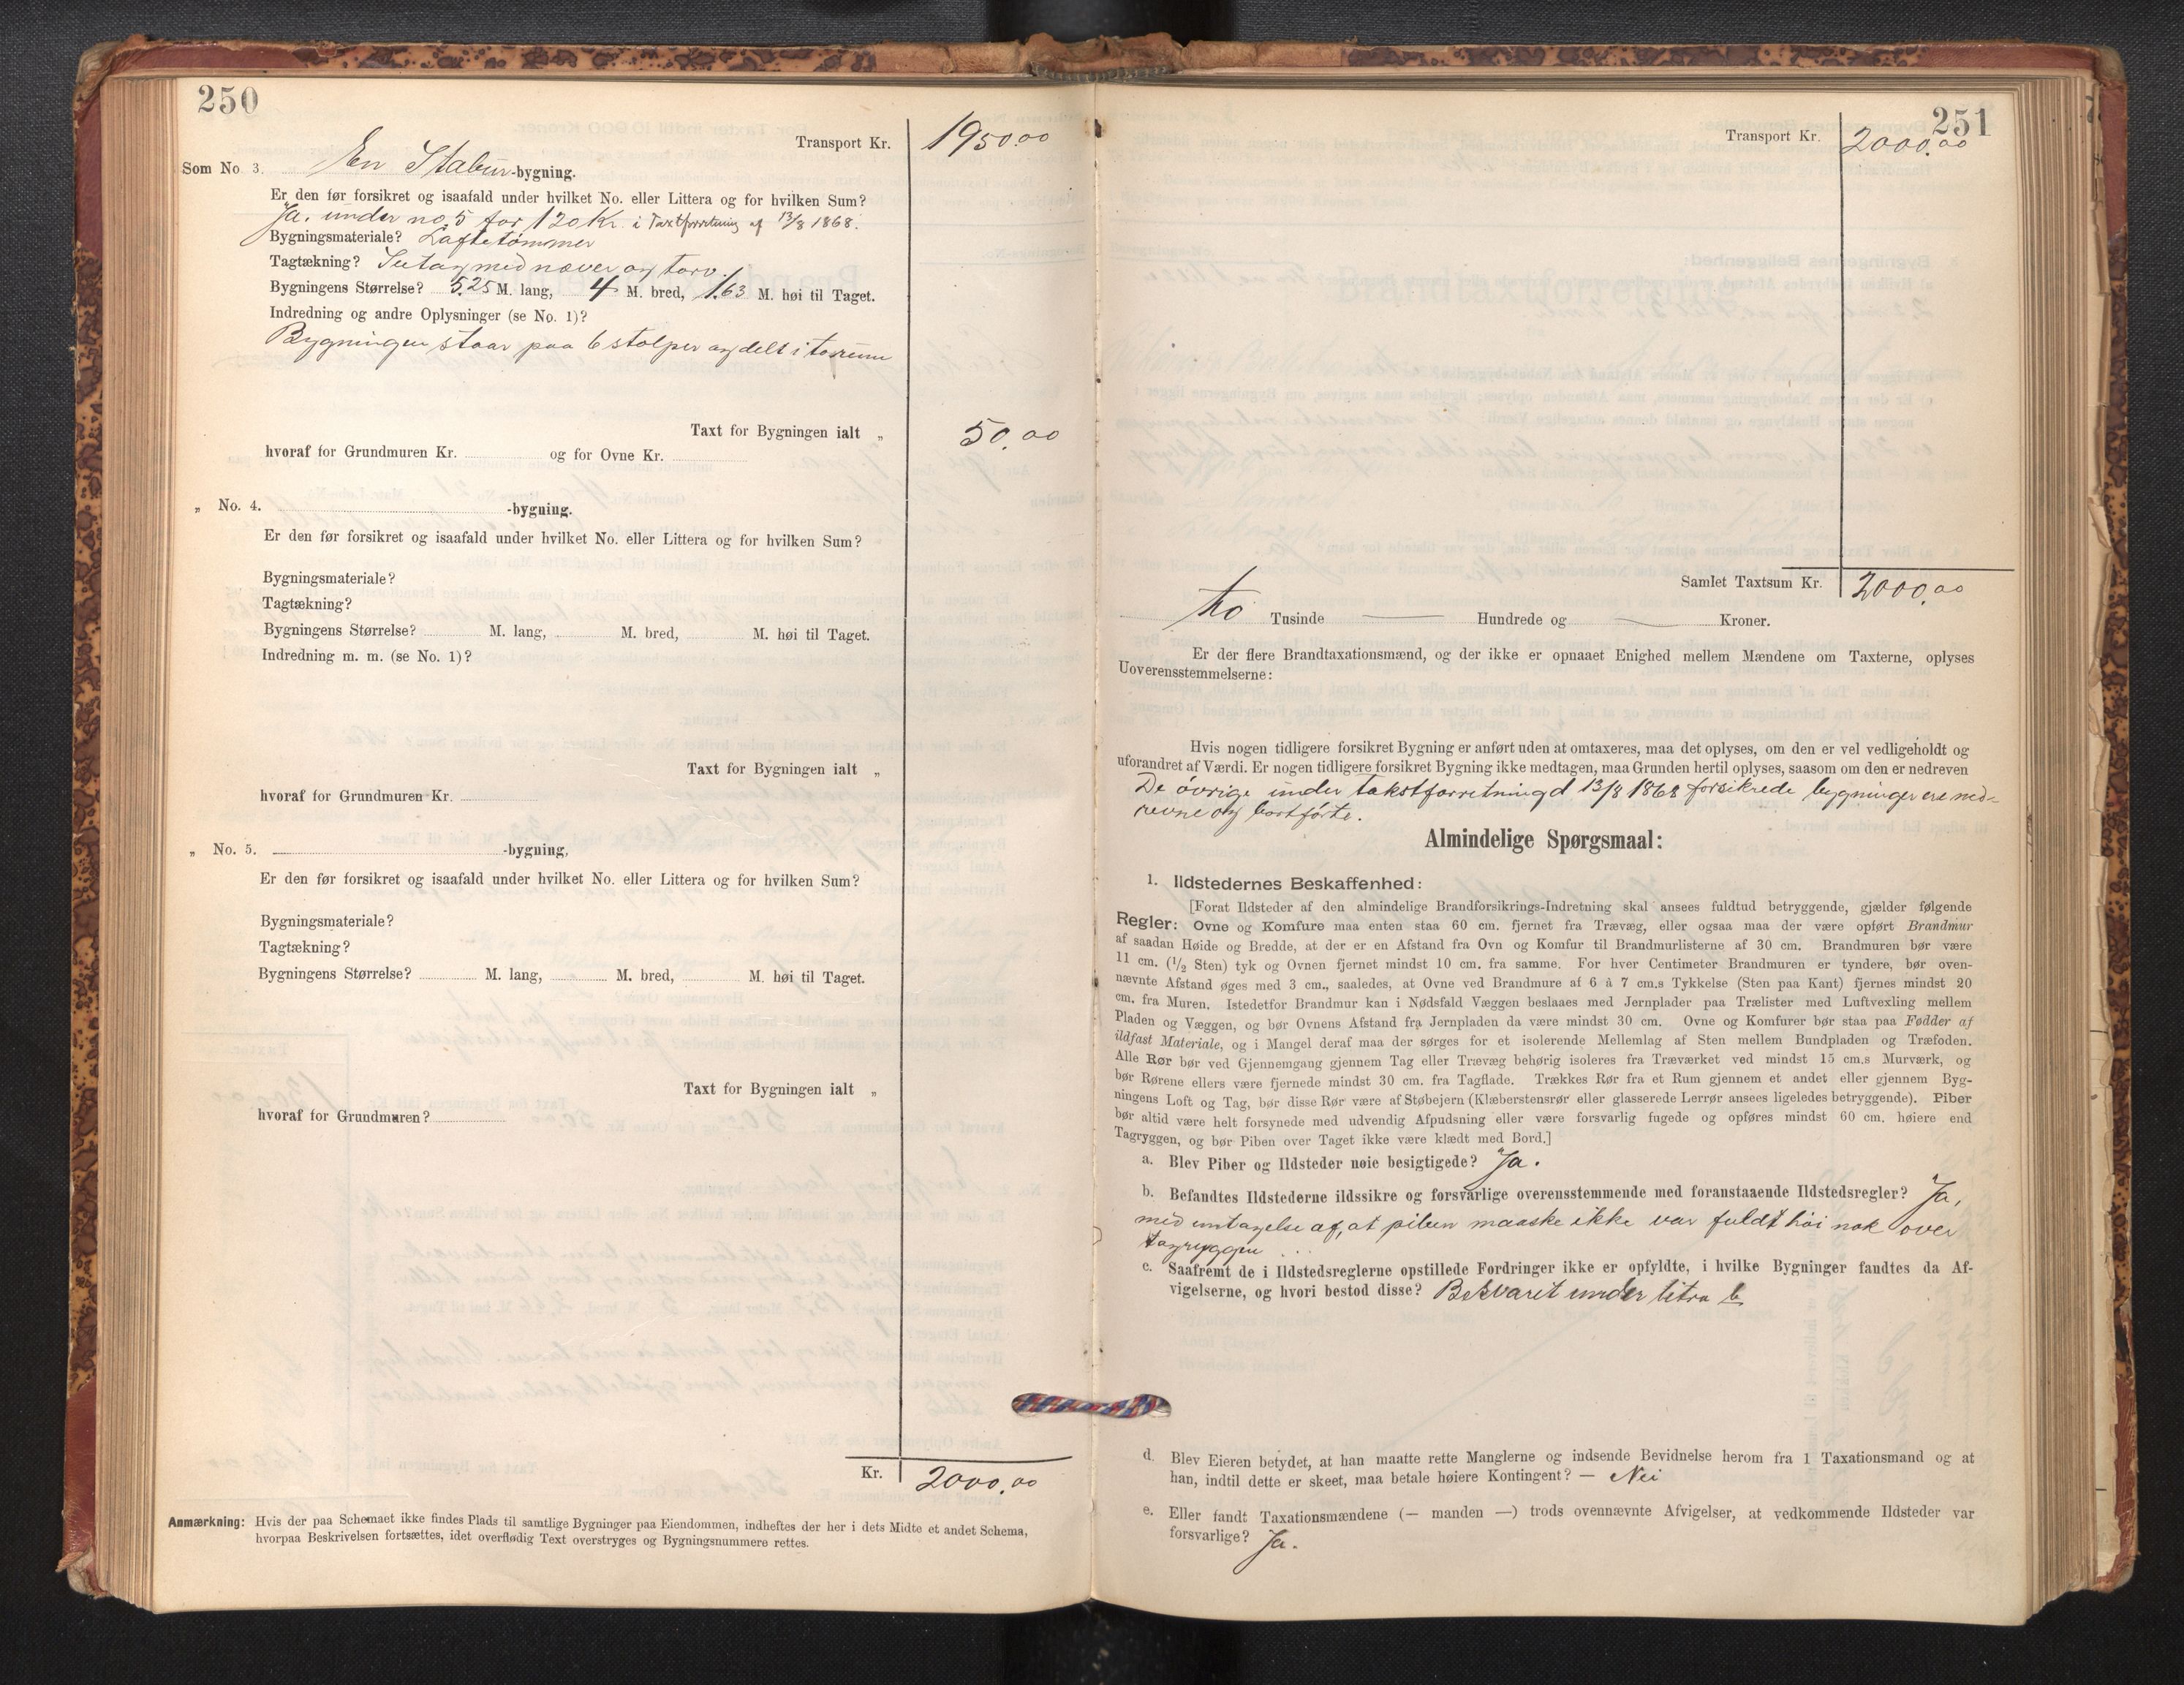 250
Transport Kr. 1950.00
Som No. 3. En Stabur-bygning.
Er den før forsikret og isaafald under hvilket No. eller Littera og for hvilken Sum?
Ja. under no 5 for 120 Kr. i Taxtforretning af 13/8 1868.
Bygningsmateriale? Laftetømmer
Tagtækning? Sutag med næver og torv.
Bygningens Størrelse? 5.25 M. lang, 4 M. bred, 1.63 M. høi til Taget.
Indredning og andre Oplysninger (se No. 1)?
Bygningen staar paa 6 stolper og delt i to rum
Taxt for Bygningen ialt „ 50.00
hvoraf for Grundmuren Kr. og for Ovne Kr.
„ No. 4. -bygning.
Er den før forsikret og isaafald under hvilket No. eller Littera og for hvilken Sum?
Bygningsmateriale?
Tagtækning?
Bygningens Størrelse? M. lang, M. bred, M. høi til Taget.
Indredning m. m. (se No. 1)?
Taxt for Bygningen ialt „
hvoraf for Grundmuren Kr.
„ No. 5. -bygning,
Er den før forsikret og isaafald under hvilket No. eller Littera og for hvilken Sum?
Bygningsmateriale?
Tagtækning?
Bygningens Størrelse? M. lang, M. bred, M. høi til Taget.
Taxt for Bygningen ialt „
hvoraf for Grundmuren?
Kr. 2000.00
Anmærkning: Hvis der paa Schemaet ikke findes Plads til samtlige Bygninger paa Eiendommen, indheftes der her i dets Midte et andet Schema,
hvorpaa Beskrivelsen fortsættes, idet overflødig Text overstryges og Bygningsnummere rettes.
251
Transport Kr. 2000.00
Samlet Taxtsum Kr. 2000.00
to Tusinde — Hundrede og — Kroner.
Er der flere Brandtaxationsmænd, og der ikke er opnaaet Enighed mellem Mændene om Taxterne, oplyses
Uoverensstemmelserne:
Hvis nogen tidligere forsikret Bygning er anført uden at omtaxeres, maa det oplyses, om den er vel vedligeholdt og
uforandret af Værdi. Er nogen tidligere forsikret Bygning ikke medtagen, maa Grunden hertil oplyses, saasom om den er nedreven
De øvrige under takstforretning d 13/8 1868 forsikrede bygninger ere ned-
revne og bortførte.
Almindelige Spørgsmaal:
1. Ildstedernes Beskaffenhed:
[Forat Ildsteder af den almindelige Brandforsikrings-Indretning skal ansees fuldtud betryggende, gjælder følgende
Regler: Ovne og Komfure maa enten staa 60 cm. fjernet fra Trævæg, eller ogsaa maa der være opført Brandmur
af saadan Høide og Bredde, at der er en Afstand fra Ovn og Komfur til Brandmurlisterne af 30 cm. Brandmuren bør være
11 cm. (1/2 Sten) tyk og Ovnen fjernet mindst 10 cm. fra samme. For hver Centimeter Brandmuren er tyndere, bør oven-
nævnte Afstand øges med 3 cm., saaledes, at Ovne ved Brandmure af 6 à 7 cm.s Tykkelse (Sten paa Kant) fjernes mindst 20
cm. fra Muren. Istedetfor Brandmur kan i Nødsfald Væggen beslaaes med Jernplader paa Trælister med Luftvexling mellem
Pladen og Væggen, og bør Ovnens Afstand fra Jernpladen da være mindst 30 cm. Ovne og Komfurer bør staa paa Fødder af
ildfast Materiale, og i Mangel deraf maa der sørges for et isolerende Mellemlag af Sten mellem Bundpladen og Træfoden.
Alle Rør bør ved Gjennemgang gjennem Tag eller Trævæg behørig isoleres fra Træværket ved mindst 15 cm.s Murværk, og
bør Rørene ellers være fjernede mindst 30 cm. fra Tagflade. Trækkes Rør fra et Rum gjennem et andet eller gjennem Byg-
ningens Loft og Tag, bør disse Rør være af Støbejern (Klæberstensrør eller glasserede Lerrør ansees ligeledes betryggende). Piber
bør altid være helt forsynede med udvendig Afpudsning eller være forsvarlig fugede og opføres mindst 60 cm. høiere end
Tagryggen, og bør Piben over Taget ikke være klædt med Bord.]
a. Blev Piber og Ildsteder nøie besigtigede? Ja.
b. Befandtes Ildstederne ildssikre og forsvarlige overensstemmende med foranstaaende Ildstedsregler? Ja,
med untagelse af, at piben maaske ikke var fuldt høi nok over
tagryggen
c. Saafremt de i Ildstedsreglerne opstillede Fordringer ikke er opfyldte, i hvilke Bygninger fandtes da Af-
vigelserne, og hvori bestod disse? Besvaret under litra b
d. Blev Eieren betydet, at han maatte rette Manglerne og indsende Bevidnelse herom fra 1 Taxationsmand og at
han, indtil dette er skeet, maa betale høiere Kontingent? — Nei
e. Eller fandt Taxationsmændene (— manden —) trods ovennævnte Afvigelser, at vedkommende Ildsteder var
forsvarlige? Ja.